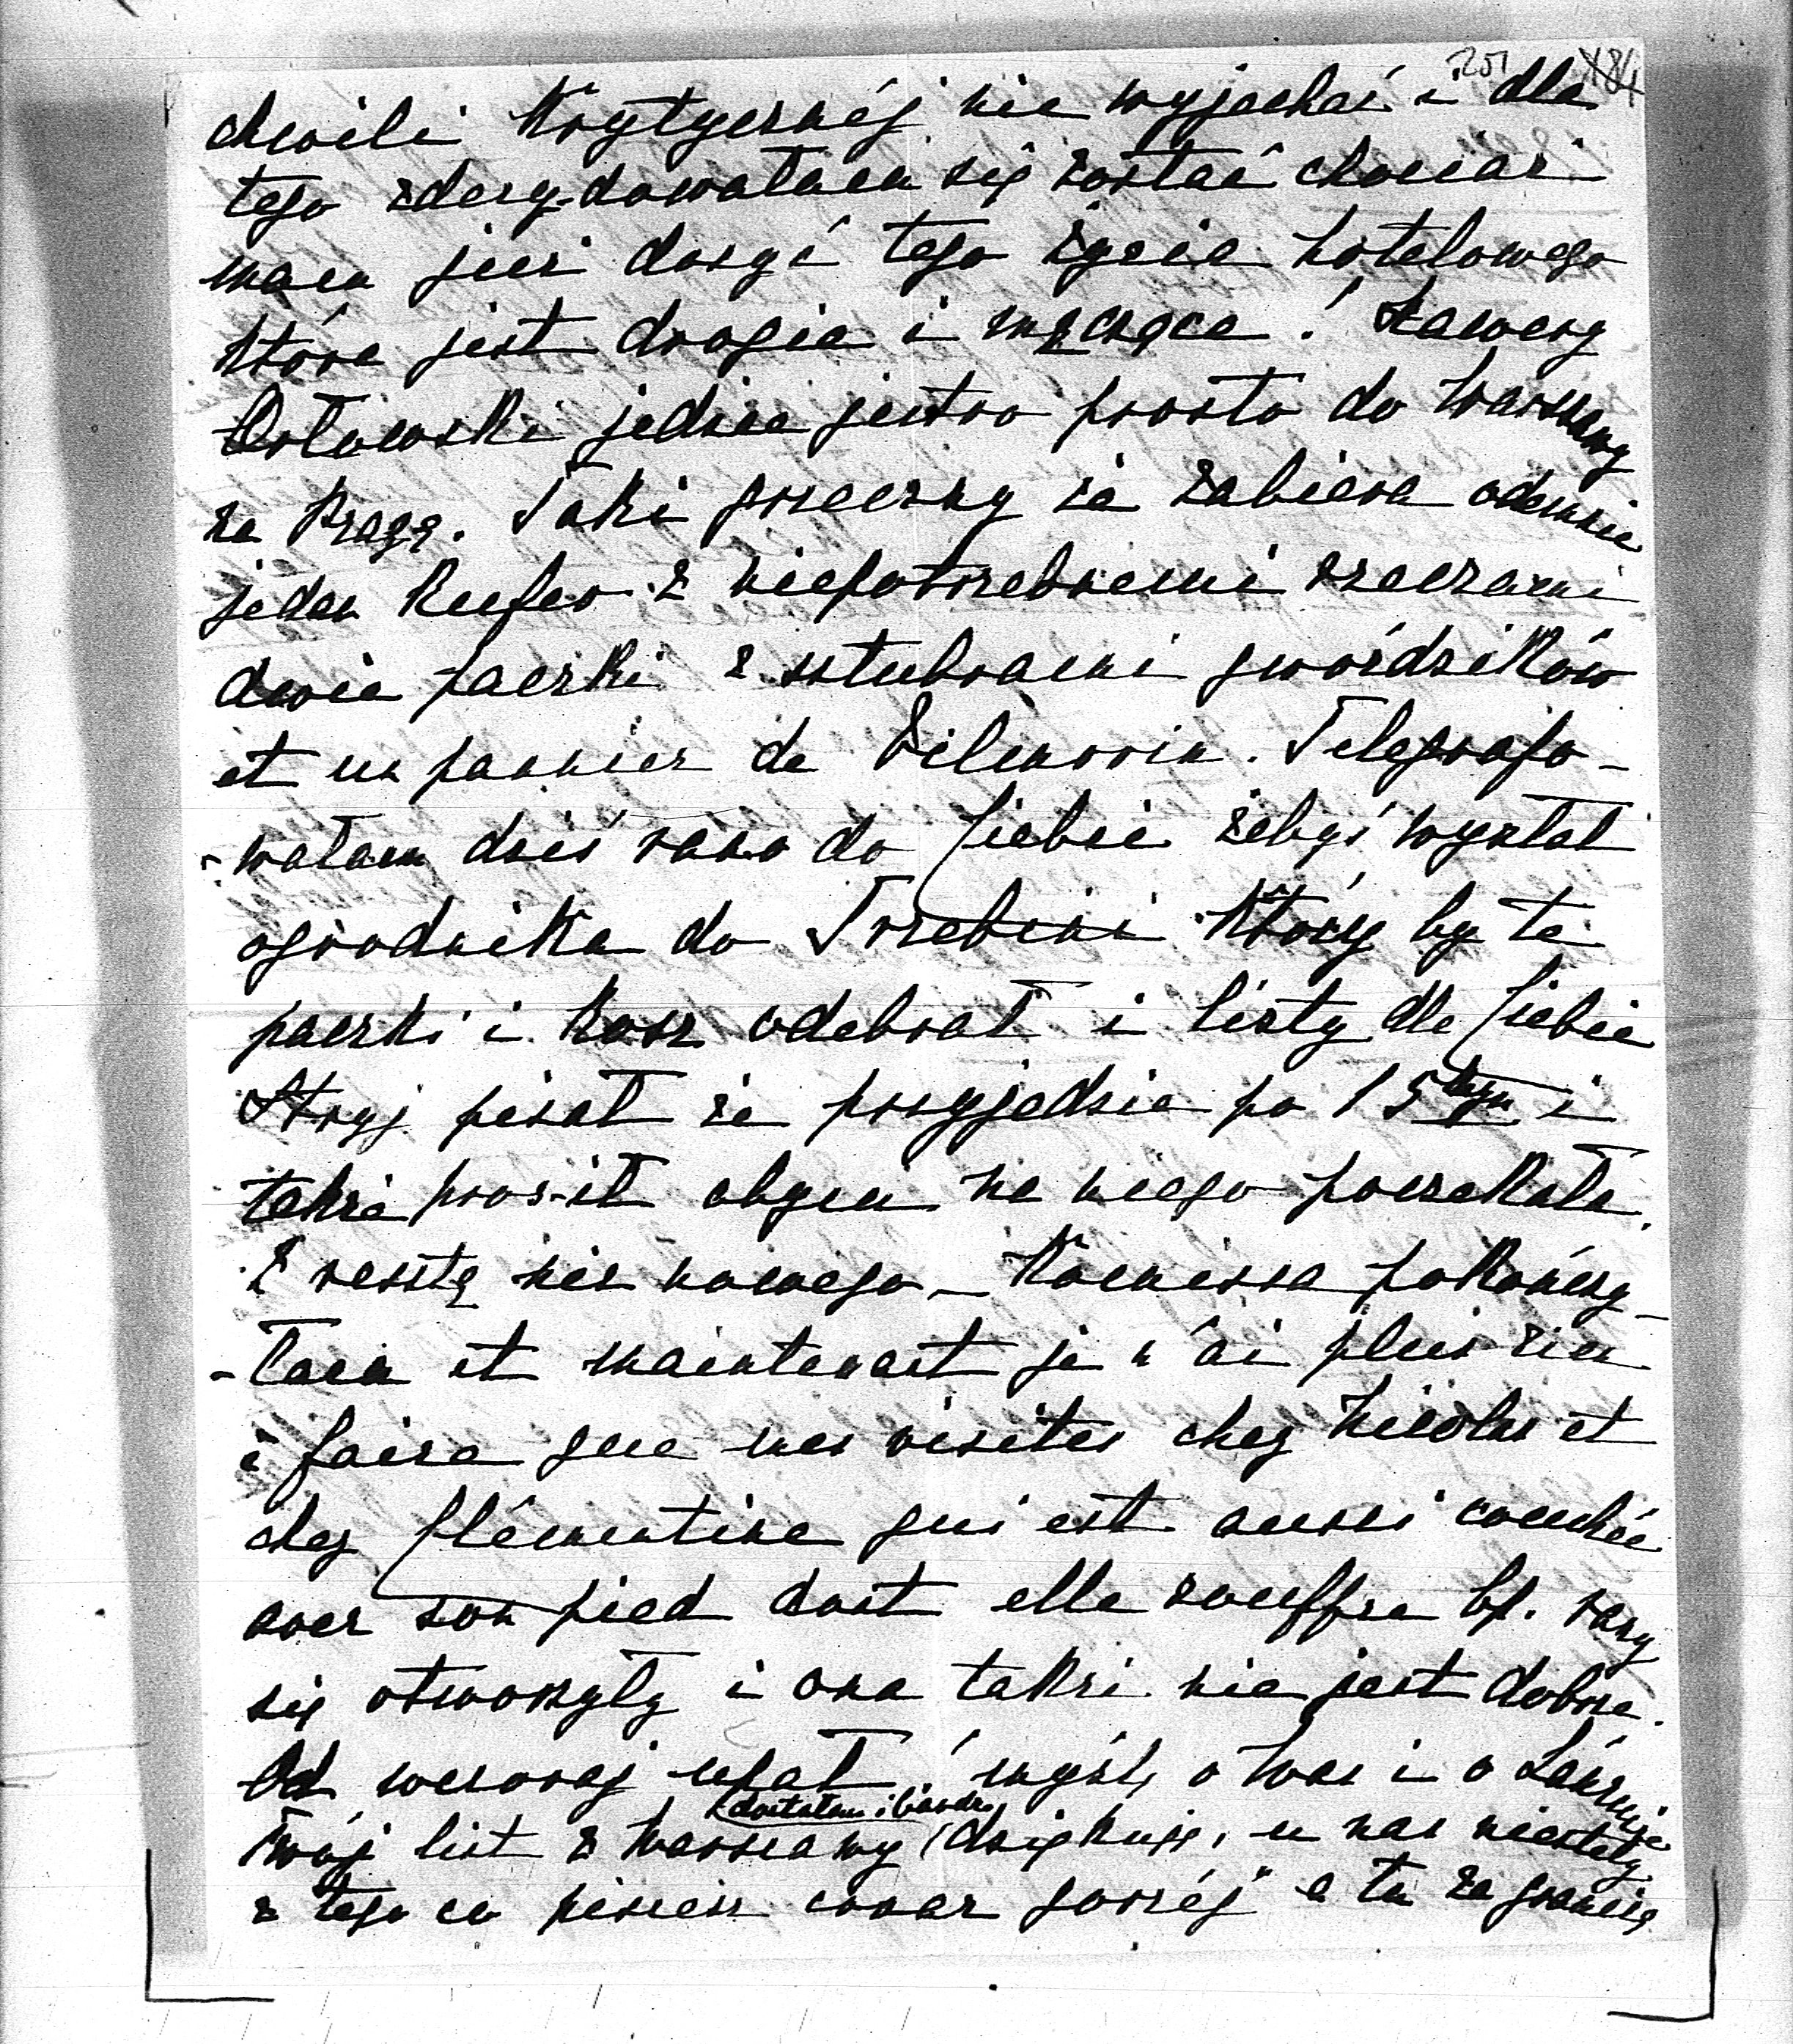 251 184
chwili Krytycznéj nie wyjechać i dla
tego zdecydowałam się zostać chociaż
mam już dosyć tego życia hotelowego
które jest drogie i męczące! Xawery
Orłowski jedzie jutro prosto do Warszawy
na Pragę. Taki grzeczny że zabiera odemnie
jeden Kufer z niepotrzebnemi rzeczami
dwie paczki z sztubrami gwoździków
et un pannier de Vilmorin. Telegrafo-
-wałam dziś rano do Ciebie żebyś wysłał
ogrodnika do Trzebini Który by te
paczki i Kosz odebrał i listy dla Ciebie
Stryj pisał że przyjedzie po 15tym i
także prosił abym na niego poczekała.
Z resztą nic nowego – Komissa pokończy-
-łam et maintenant je n'ai plus rien
à faire que mes visites chez Nicolas et
chez Clémentine qui est aussi couchée
avec son pied dont elle souffre bp. rany
się otworzyły i ona także nie jest dobrze.
Od wczoraj upał! myślę o Was i o Łańcucie
Twój list z Warszawy dostałam i bardzo dziękuję, u nas niestety
z tego co piszesz coraz gorzéj a tu za granicą